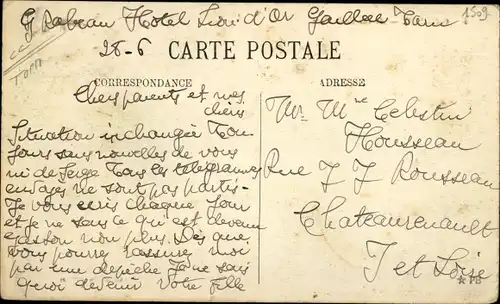 G Rabeau Hotel Lion d'Or Gaillac Tarn
1509
28-6
CARTE POSTALE
CORRESPONDANCE
ADRESSE
Chers parents et mes
chéris
Situation inchangée Tou
jours sans nouvelles de vous
ni de Serge Tous les télégrammes
envoyés ne sont pas partis-
Je vous écris chaque jour
et je ne sais ce qui est devenu
Gaston non plus. Dès que
vous pourrez rassurez moi
par une depêche Je ne sais
quoi devenir Votre fille
Mr Mme Celestin
Housseau
Rue J J Rousseau
Chateaurenault
I et Loire
PB